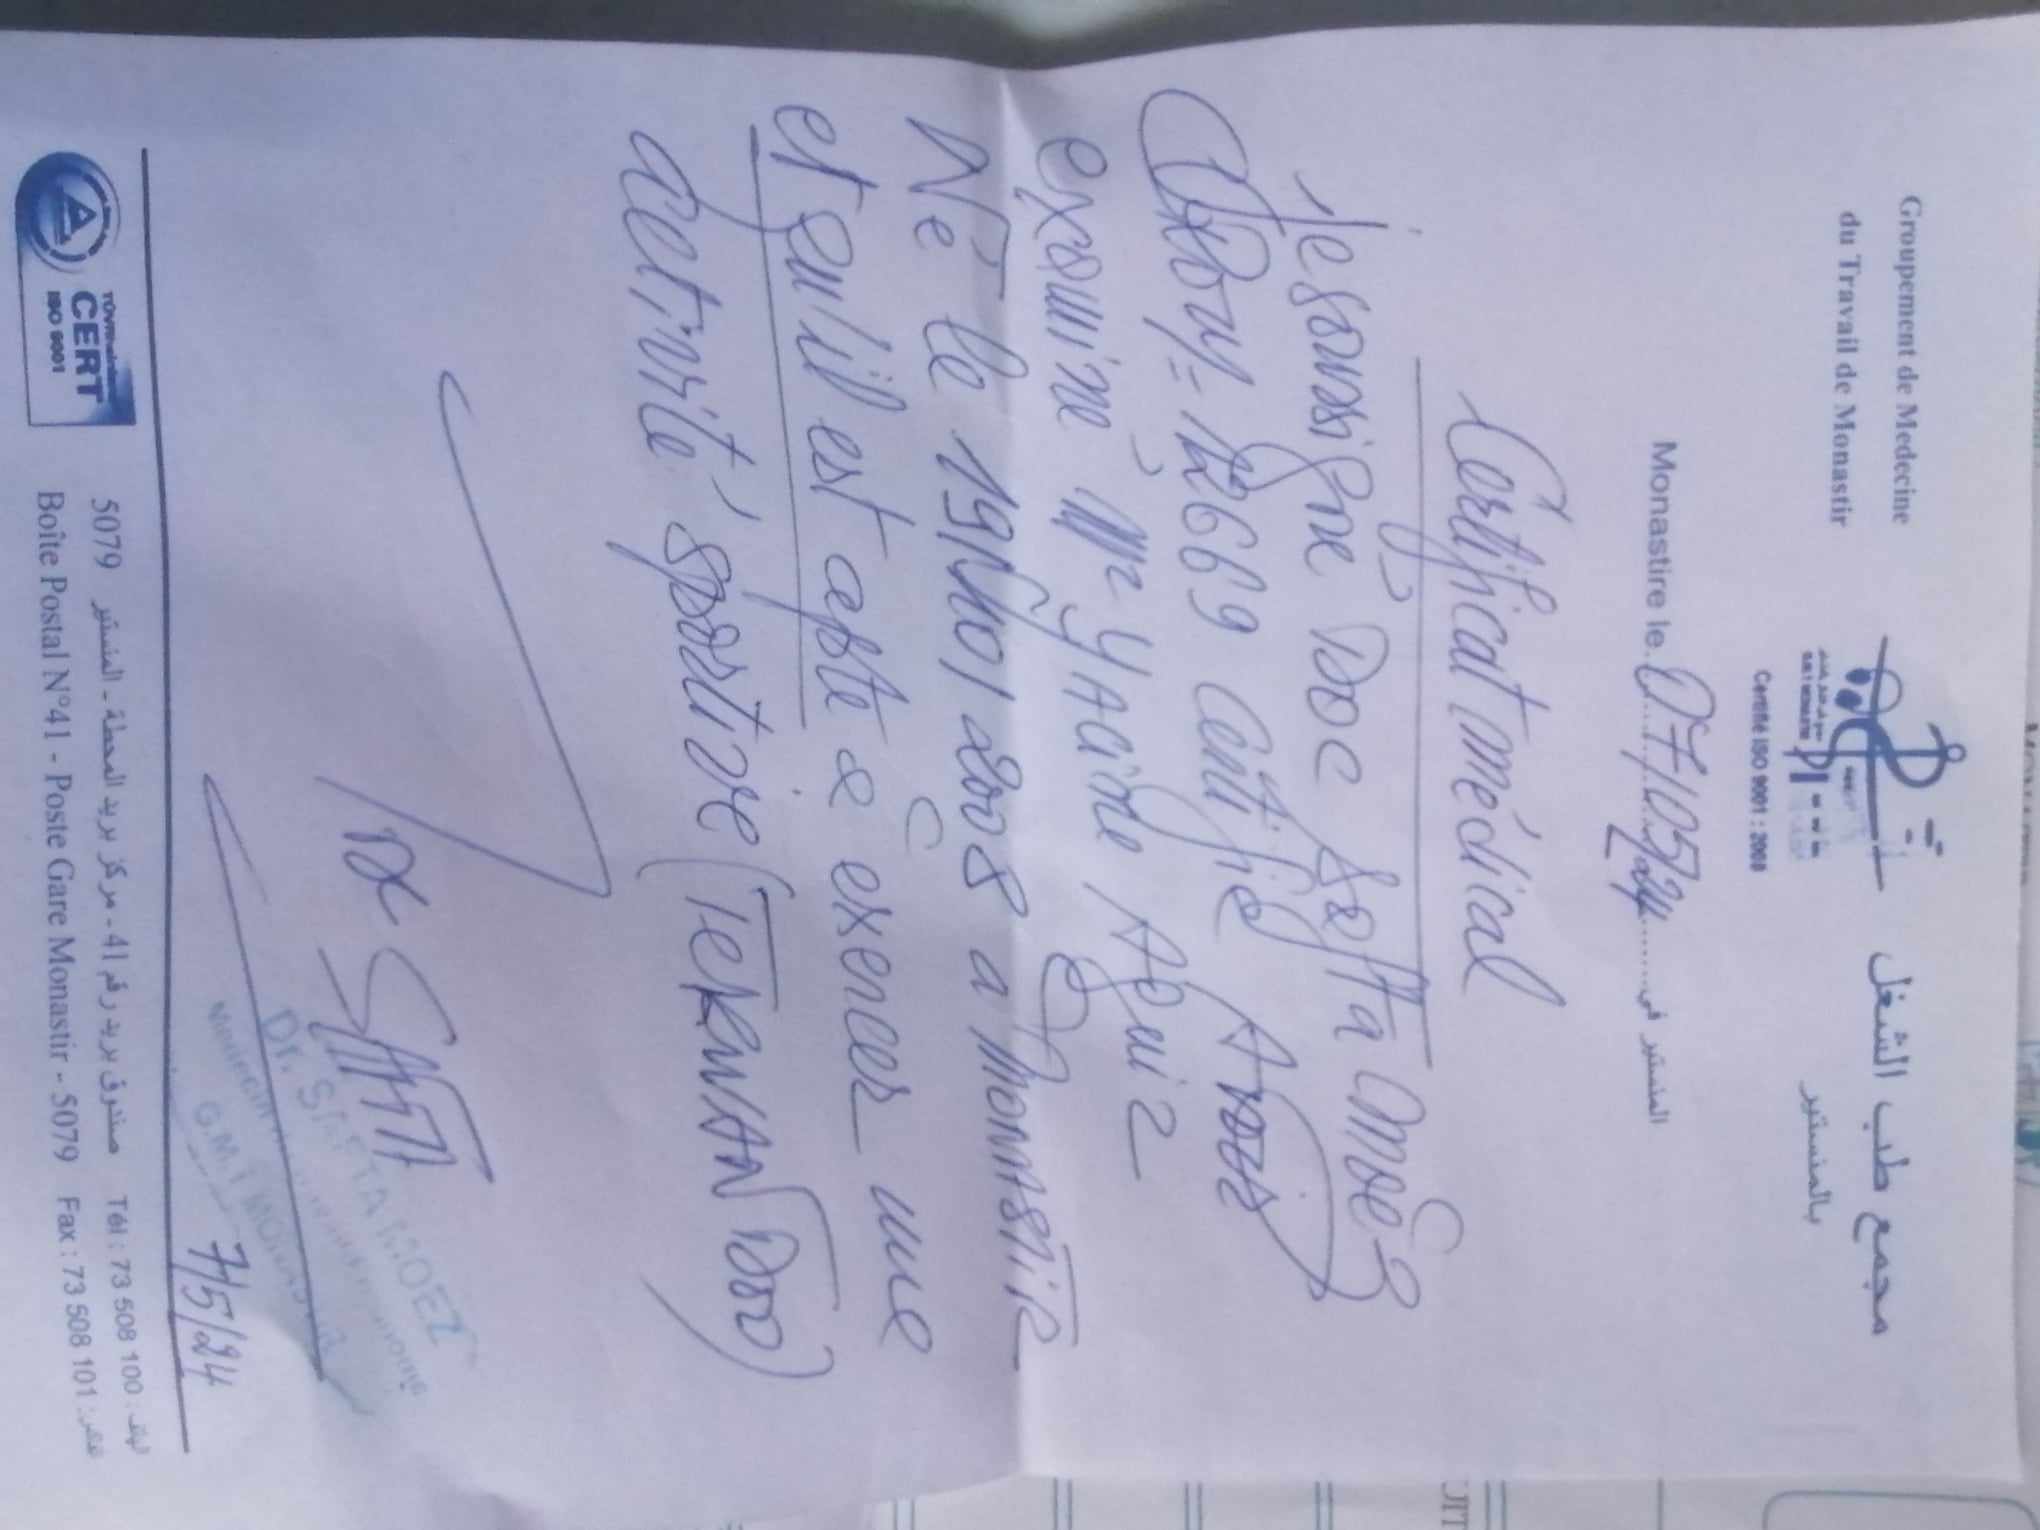 Groupement de Medecine
du Travail de Monastir
مجمع طب الشغل
بالمنستير
Certifié ISO 9001 : 2008
Monastire le 07/05/24 المنستير في
Certificat médical
Je soussigné Doc Safta Moez
12669 Certifie Avoir
examiné Mr Yacine Aguiz
Né le 19/10/2008 a MONASTIR
et qu'il est apte a exercer une
activité sportive (TEKWANDOO)
Dr SAFTA
Dr. SAFTA MOEZ
G.M.T MONASTIR
7/5/24
CERT
ISO 9001
5079 صندوق بريد رقم 41 - مركز بريد المحطة - المنستير Tél : 73 508 100
Boîte Postal N°41 - Poste Gare Monastir - 5079 Fax : 73 508 101